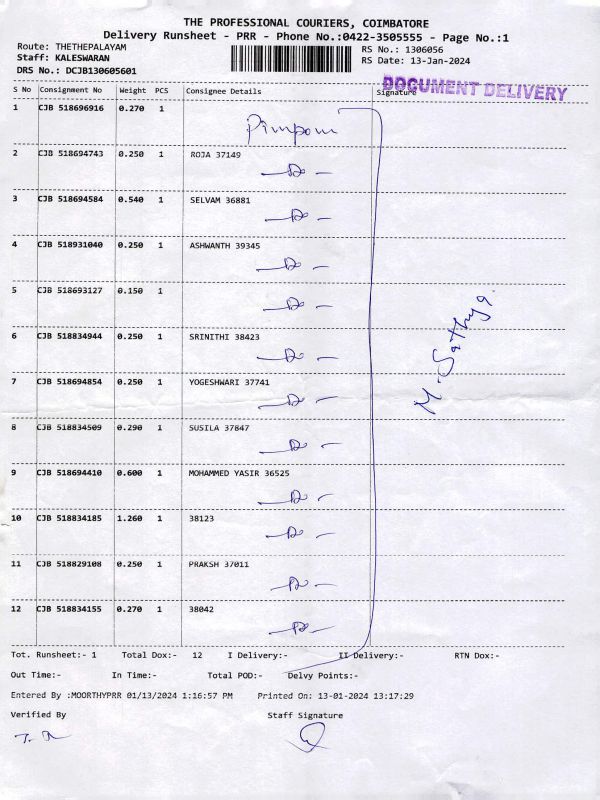 THE PROFESSIONAL COURIERS, COIMBATORE
Delivery Runsheet - PRR - Phone No.:0422-3505555 - Page No.:1
Route: THETHEPALAYAM RS No.: 1306056
Staff: KALESWARAN RS Date: 13-Jan-2024
DRS No.: DCJB130605601
DOCUMENT DELIVERY
S No Consignment No Weight PCS Consignee Details Signature
1 CJB 518696916 0.270 1
Pimpom
2 CJB 518694743 0.250 1 ROJA 37149
-Do-
3 CJB 518694584 0.540 1 SELVAM 36881
-Do-
4 CJB 518931040 0.250 1 ASHWANTH 39345
-Do-
5 CJB 518693127 0.150 1
-Do-
6 CJB 518834944 0.250 1 SRINITHI 38423
-Do-
7 CJB 518694854 0.250 1 YOGESHWARI 37741
-Do-
8 CJB 518834509 0.290 1 SUSILA 37847
-Do-
9 CJB 518694410 0.600 1 MOHAMMED YASIR 36525
-Do-
10 CJB 518834185 1.260 1 38123
-Do-
11 CJB 518829108 0.250 1 PRAKSH 37011
-Do-
12 CJB 518834155 0.270 1 38042
-Do-
M. Sathya
Tot. Runsheet:- 1 Total Dox:- 12 I Delivery:- II Delivery:- RTN Dox:-
Out Time:- In Time:- Total POD:- Delvy Points:-
Entered By :MOORTHYPRR 01/13/2024 1:16:57 PM Printed On: 13-01-2024 13:17:29
Verified By Staff Signature